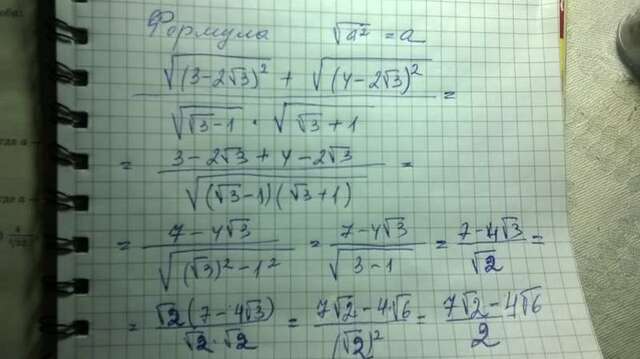 Формула √a² = a
(√((3-2√3)²) + √((4-2√3)²)) / (√(√3-1) · √(√3+1)) =
= (3-2√3+4-2√3) / √((√3-1)(√3+1)) =
= (7-4√3) / √((√3)²-1²) = (7-4√3) / √(3-1) = (7-4√3) / √2 =
= √2(7-4√3) / (√2·√2) = (7√2-4√6) / (√2)² = (7√2-4√6) / 2